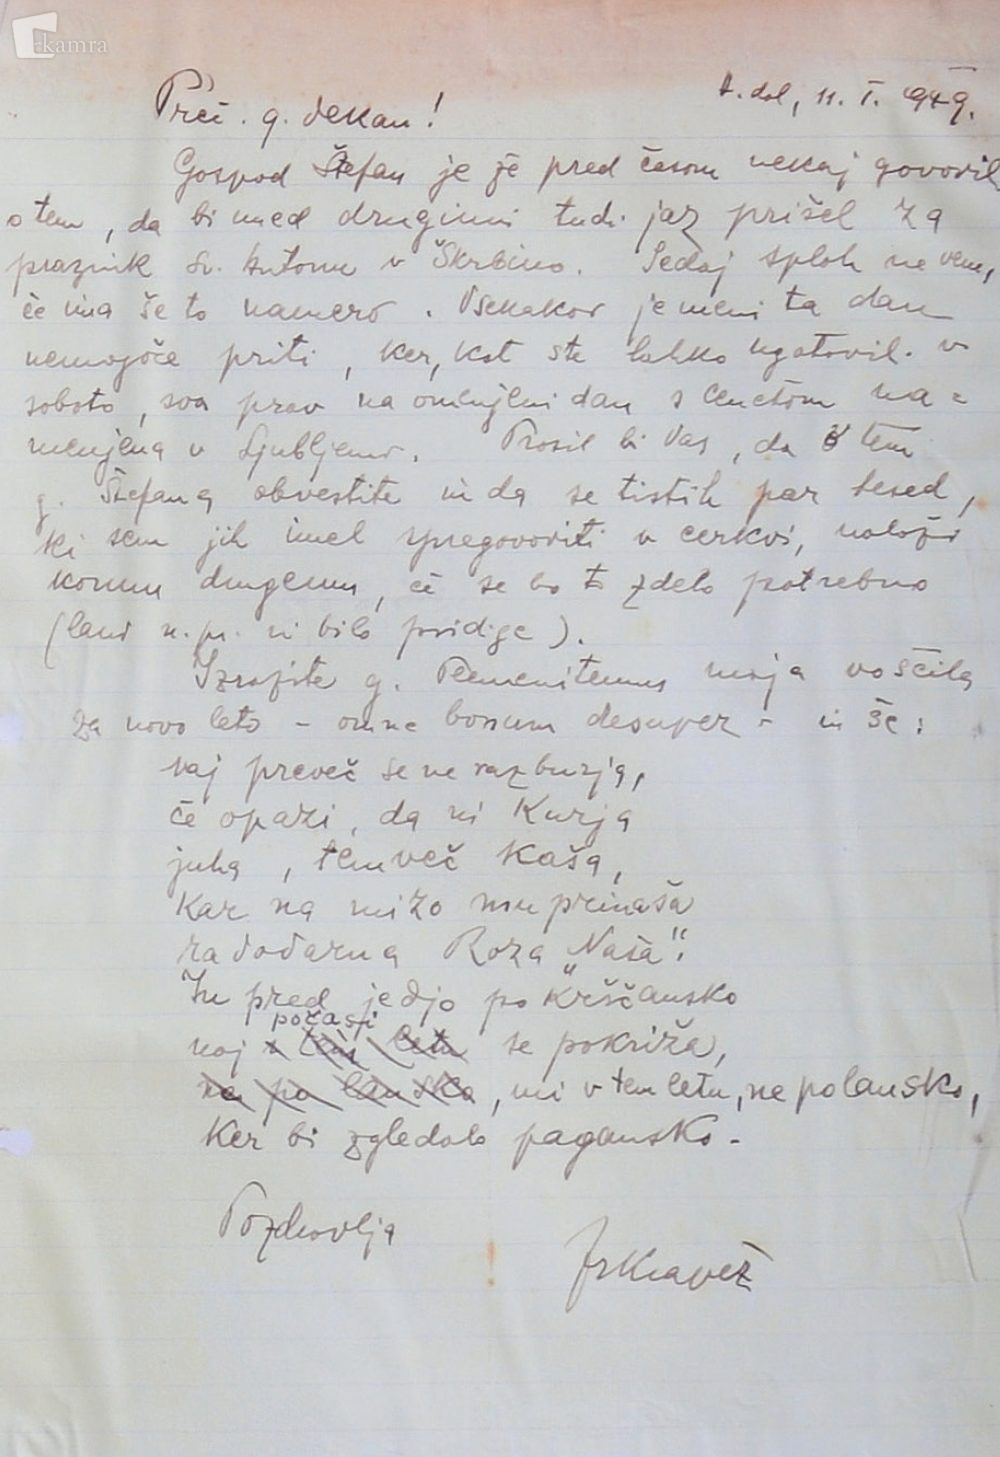 kamra
t. dol, 11. I. 1949.
Preč. g. dekan!
Gospod Štefan je že pred časom nekaj govoril
o tem, da bi med drugimi tudi jaz prišel za
praznik sv. Antona v Škrbino. Sedaj sploh ne vem,
če ima še to namero. Vsekakor je meni ta dan
nemogoče priti, ker, kot ste lahko ugotovili v
soboto, sva prav na omenjeni dan s Cenetom na=
menjena v Ljubljano. Prosil bi Vas, da o tem
g. Štefana obvestite in da se tistih par besed,
ki sem jih imel spregovoriti v cerkvi, naloži
komu drugemu, če se bo to zdelo potrebno
(lani n. pr. ni bilo pridige).
Izrazite g. Plemenitemu moja voščila
za novo leto - omne bonum desuper - in še:
naj preveč se ne razburja,
če opazi, da ni kurja
juha, temveč kaša,
kar na mizo mu prinaša
radodarna Roza „Naša".
In pred jedjo po kršćansko
naj počasi v tem letu se pokriža,
ne po lansko, ni v tem letu, ne po lansko,
ker bi zgledalo pagansko.
Pozdravlja